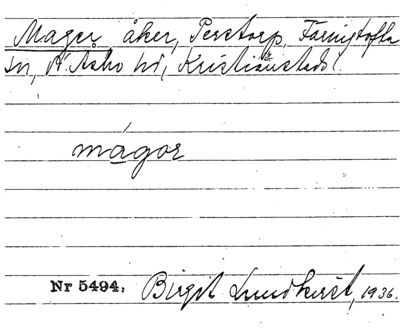 Mager åker, Perstorp, Färingtofta
sn, N. Åsbo hd, Kristianstads l.
mágor
Nr 5494. Birgit Lundkvist, 1936.